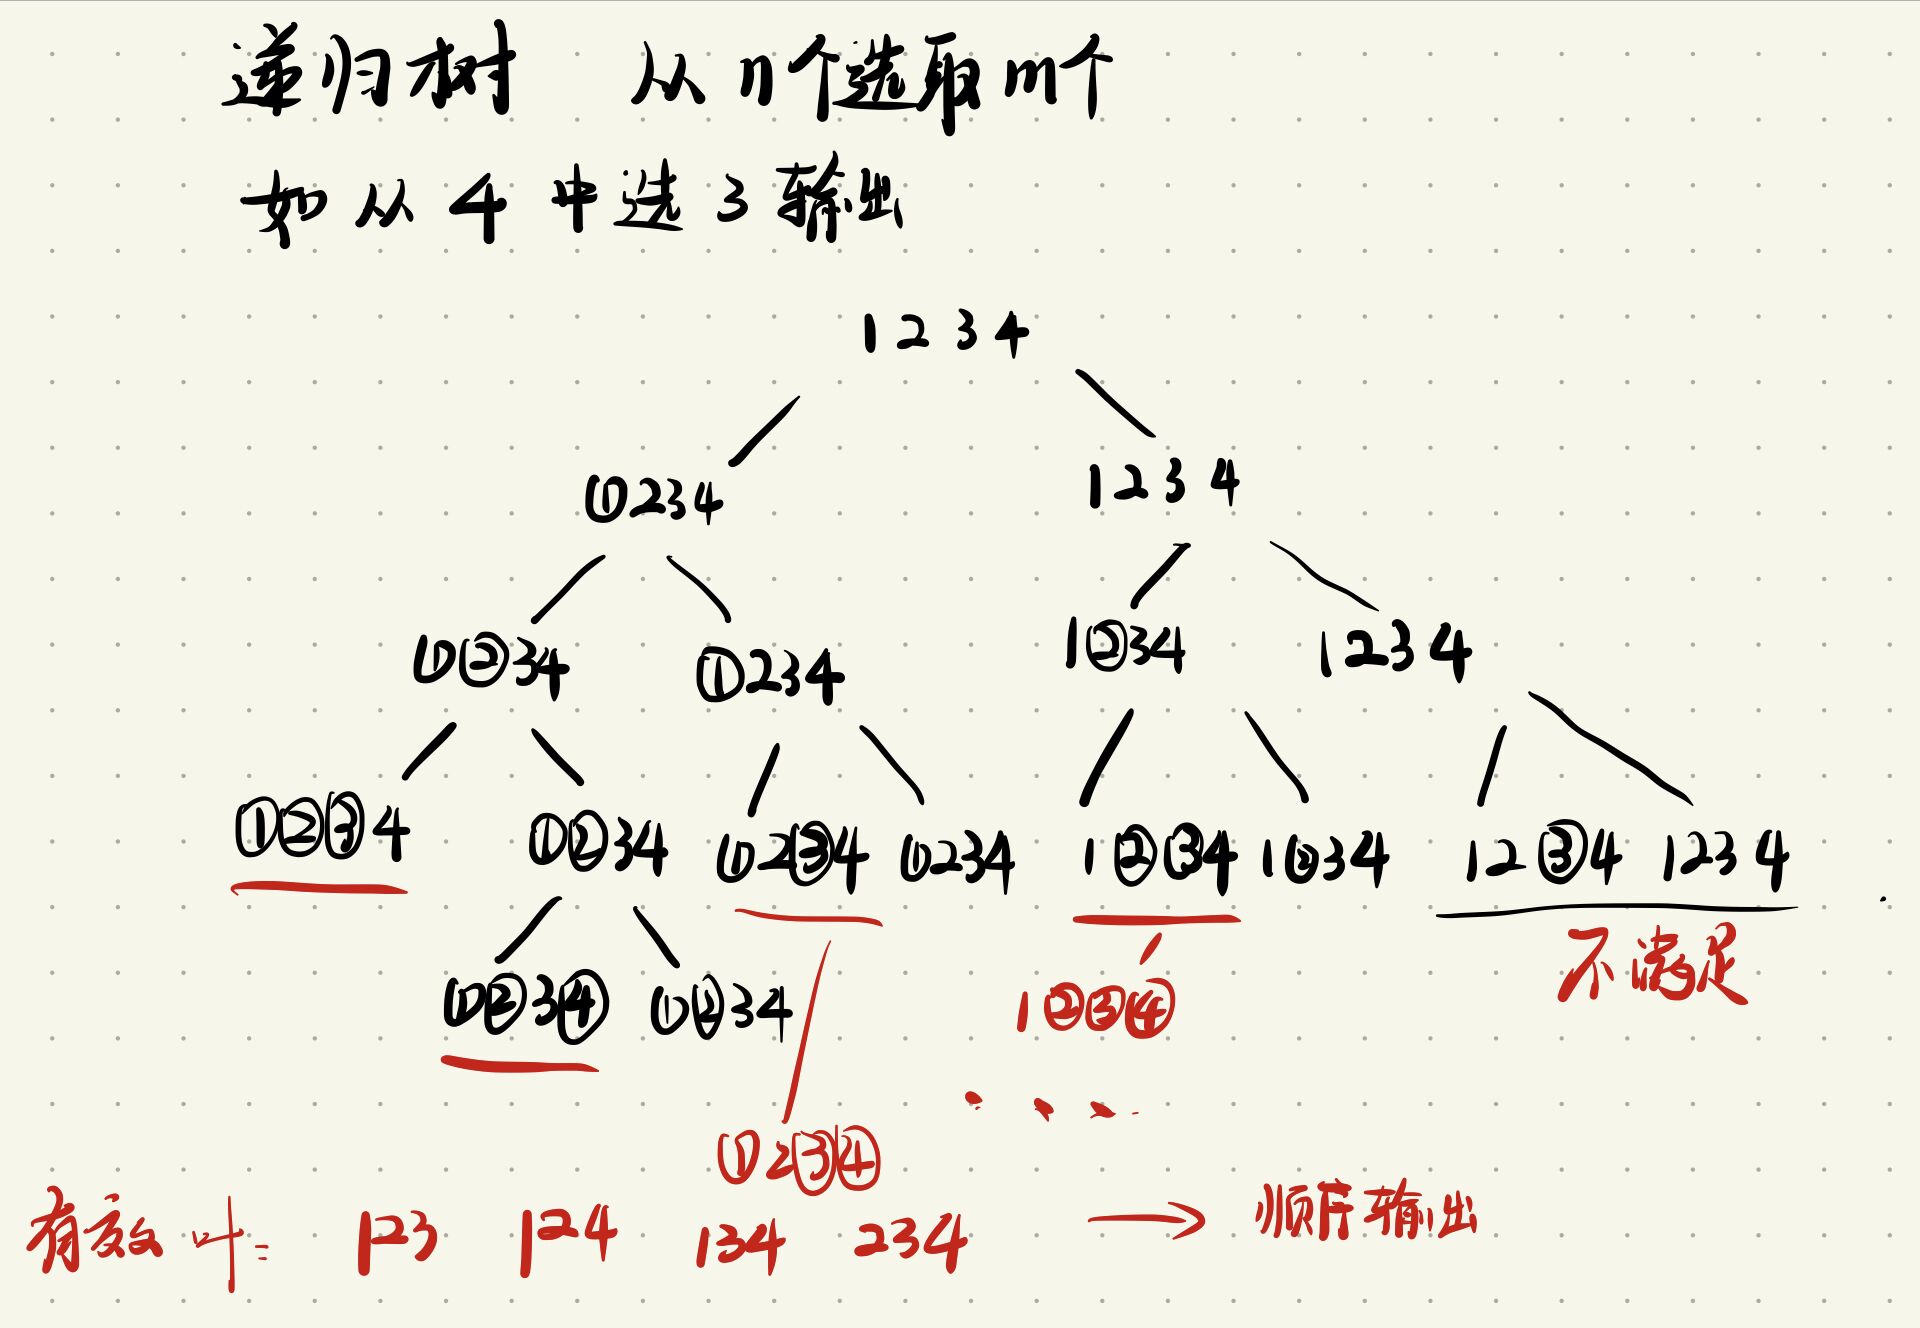 递归树 从n个选取m个
如从4中选3输出
1 2 3 4
①234 1 2 3 4
①②34 ①234 1②34 1 2 3 4
①②③4 ①②34 ①2③4 ①234 1②③4 1②34 12③4 123 4
不满足
①②3④ ①②34 1②③④
①2③④
有效叶= 123 124 134 234 → 顺序输出